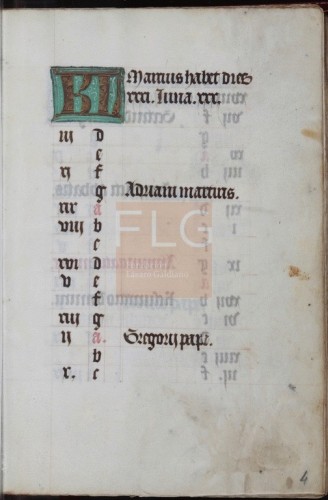 KL Marcius habet dies
xxxi. luna. xxx.
iii d
e
xi f
g Adriani martiris.
xix a
viii b
c
xvi d
v e
f
xiii g
ii a. Gregorij pape.
b
x. c
FLG
4